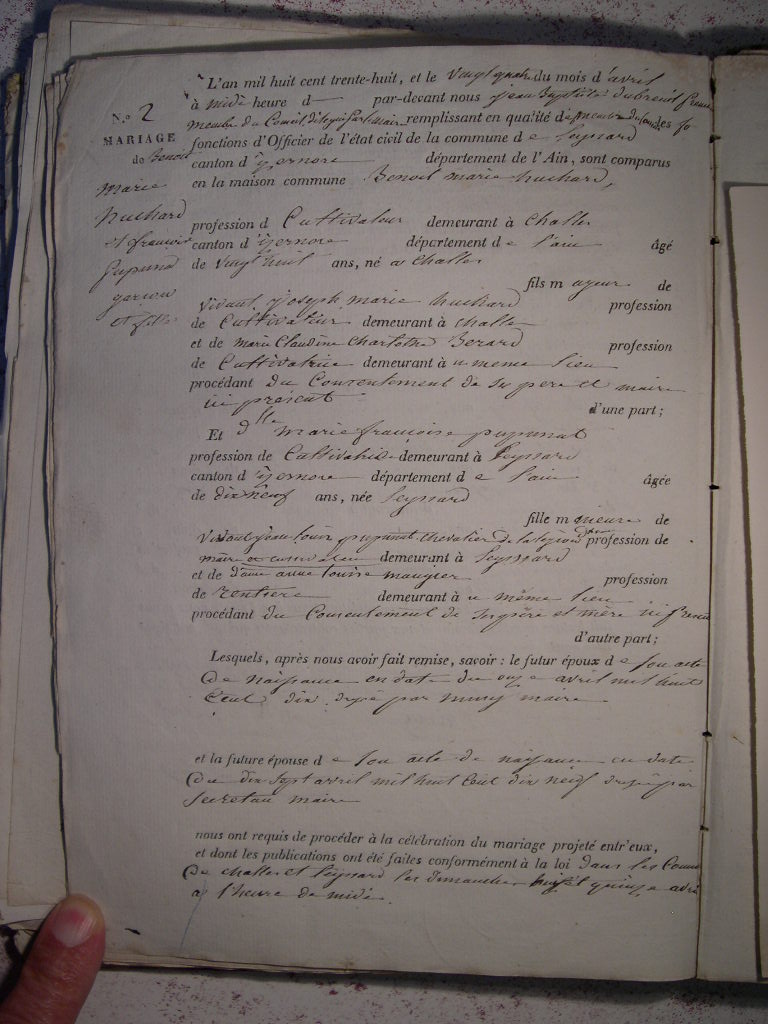 L'an mil huit cent trente-huit, et le vingt quatre du mois d'avril
à midi heure d par-devant nous jean Baptiste dubreuil
N.o 2
membre du Conseil remplissant en qualité de les fo
MARIAGE
fonctions d'Officier de l'état civil de la commune de Leyssard
de Benoit
canton d'izernore département de l'Ain, sont comparus
marie
en la maison commune Benoit marie huchard,
huchard
profession de Cultivateur demeurant à Challes
et francoise
canton d'izernore département de l'ain âgé
pupunat
de vingt huit ans, né à Challes
garcon
fils majeur de
et fille
vivant joseph marie huchard profession
de Cultivateur demeurant à challes
et de marie Claudine Charlotte Berard profession
de Cultivatrice demeurant au meme lieu
procédant du Consentement de ses pere et mere
ici présent
d'une part;
Et dlle marie francoise pupunat
profession de Cultivatrice demeurant à Leyssard
canton d'izernore département de l'ain âgée
de dix neuf ans, née Leyssard
fille mineure de
vivant jean louis pupunat chevalier de la legion profession de
maire et demeurant à Leyssard
et de dame anne louise maugier profession
de rentiere demeurant au même lieu
procédant du Consentement de ses père et mère ici present
d'autre part;
Lesquels, après nous avoir fait remise, savoir : le futur époux de son acte
de naissance en date du onze avril mil huit
Cent dix dressé par muny maire
et la future épouse de son acte de naissance en date
du dix sept avril mil huit Cent dix neuf dressé par
secretan maire
nous ont requis de procéder à la célébration du mariage projeté entr'eux,
et dont les publications ont été faites conformément à la loi dans les Comm
de challes et Leyssard les dimanches huit et quinze avril
à l'heure de midi.